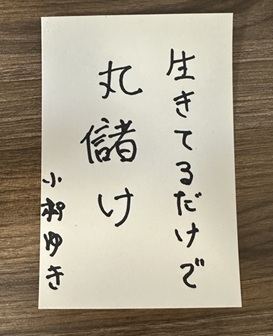 生きてるだけで
丸儲け
小籾ゆき